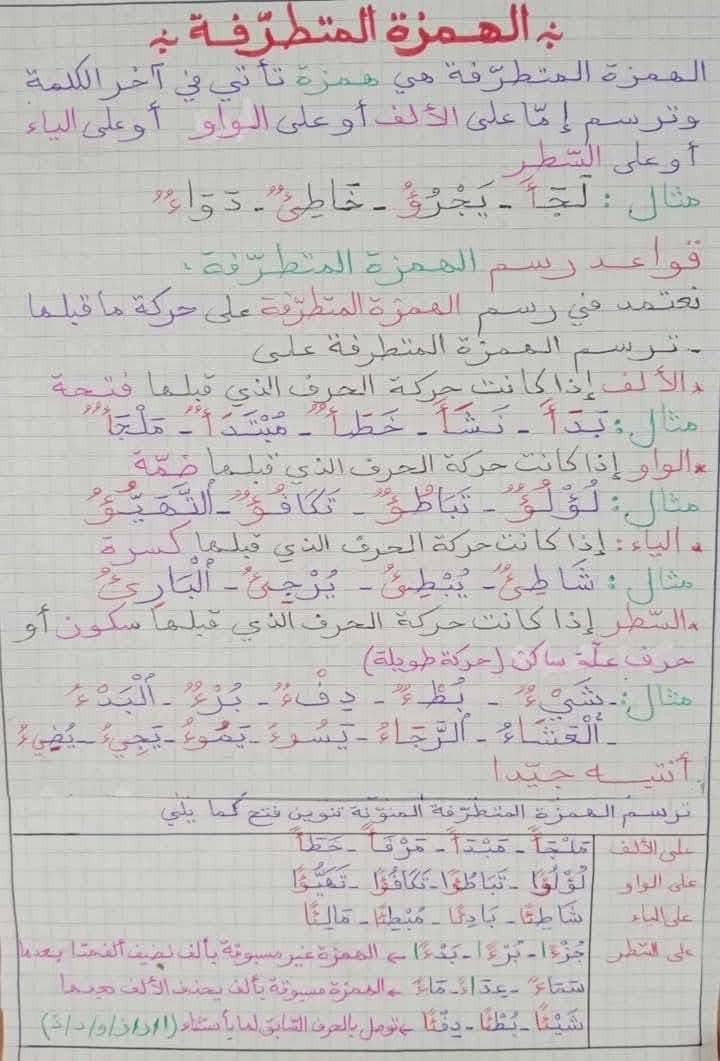 الهمزة المتطرّفة
الهمزة المتطرّفة هي همزة تأتي في آخر الكلمة
وترسم إمّا على الألف أو على الواو أو على الياء
أو على السّطر
مثال : لَجَأَ - يَجْرُؤُ - خَاطِئٌ - دَوَاءٌ
قواعد رسم الهمزة المتطرّفة :
نعتمد في رسم الهمزة المتطرّفة على حركة ما قبلها
- ترسم الهمزة المتطرفة على
* الألف إذا كانت حركة الحرف الذي قبلها فتحة
مثال : بَدَأَ - نَشَأَ - خَطَأٌ - مُبْتَدَأٌ - مَلْجَأٌ
* الواو إذا كانت حركة الحرف الذي قبلها ضمّة
مثال : لُؤْلُؤٌ - تَبَاطُؤٌ - تَكَافُؤٌ - اَلتَّهَيُّؤُ
* الياء : إذا كانت حركة الحرف الذي قبلها كسرة
مثال : شَاطِئٌ - يُبْطِئُ - يُرْجِئُ - اَلْبَارِئُ
* السّطر إذا كانت حركة الحرف الذي قبلها سكون أو
حرف علّة ساكن (حركة طويلة)
مثال : - شَيْءٌ - بُطْءٌ - دِفْءٌ - بُرْءٌ - اَلْبَدْءُ
- اَلْعَشَاءُ - اَلرَّجَاءُ - يَسُوءُ - يَمُوءُ - يَجِيءُ - يُضِيءُ
أنتبه جيّدا
ترسم الهمزة المتطرّفة المنوّنة تنوين فتح كما يلي
على الألف مَلْجَأً - مَبْدَأً - مَرْفَأً - خَطَأً
على الواو لُؤْلُؤًا - تَبَاطُؤًا - تَكَافُؤًا - تَهَيُّؤًا
على الياء شَاطِئًا - بَادِئًا - مُبْطِئًا - مَالِئًا
على السّطر جُزْءًا - بُرْءًا - بَدْءًا ← الهمزة غير مسبوقة بألف نضيف ألفا بعدها
سَمَاءً - عِدَاءً - مَاءً ← الهمزة مسبوقة بألف يحذف الألف بعدها
شَيْئًا - بُطْئًا - دِفْئًا ← توصل بالحرف السّابق لها باستثناء